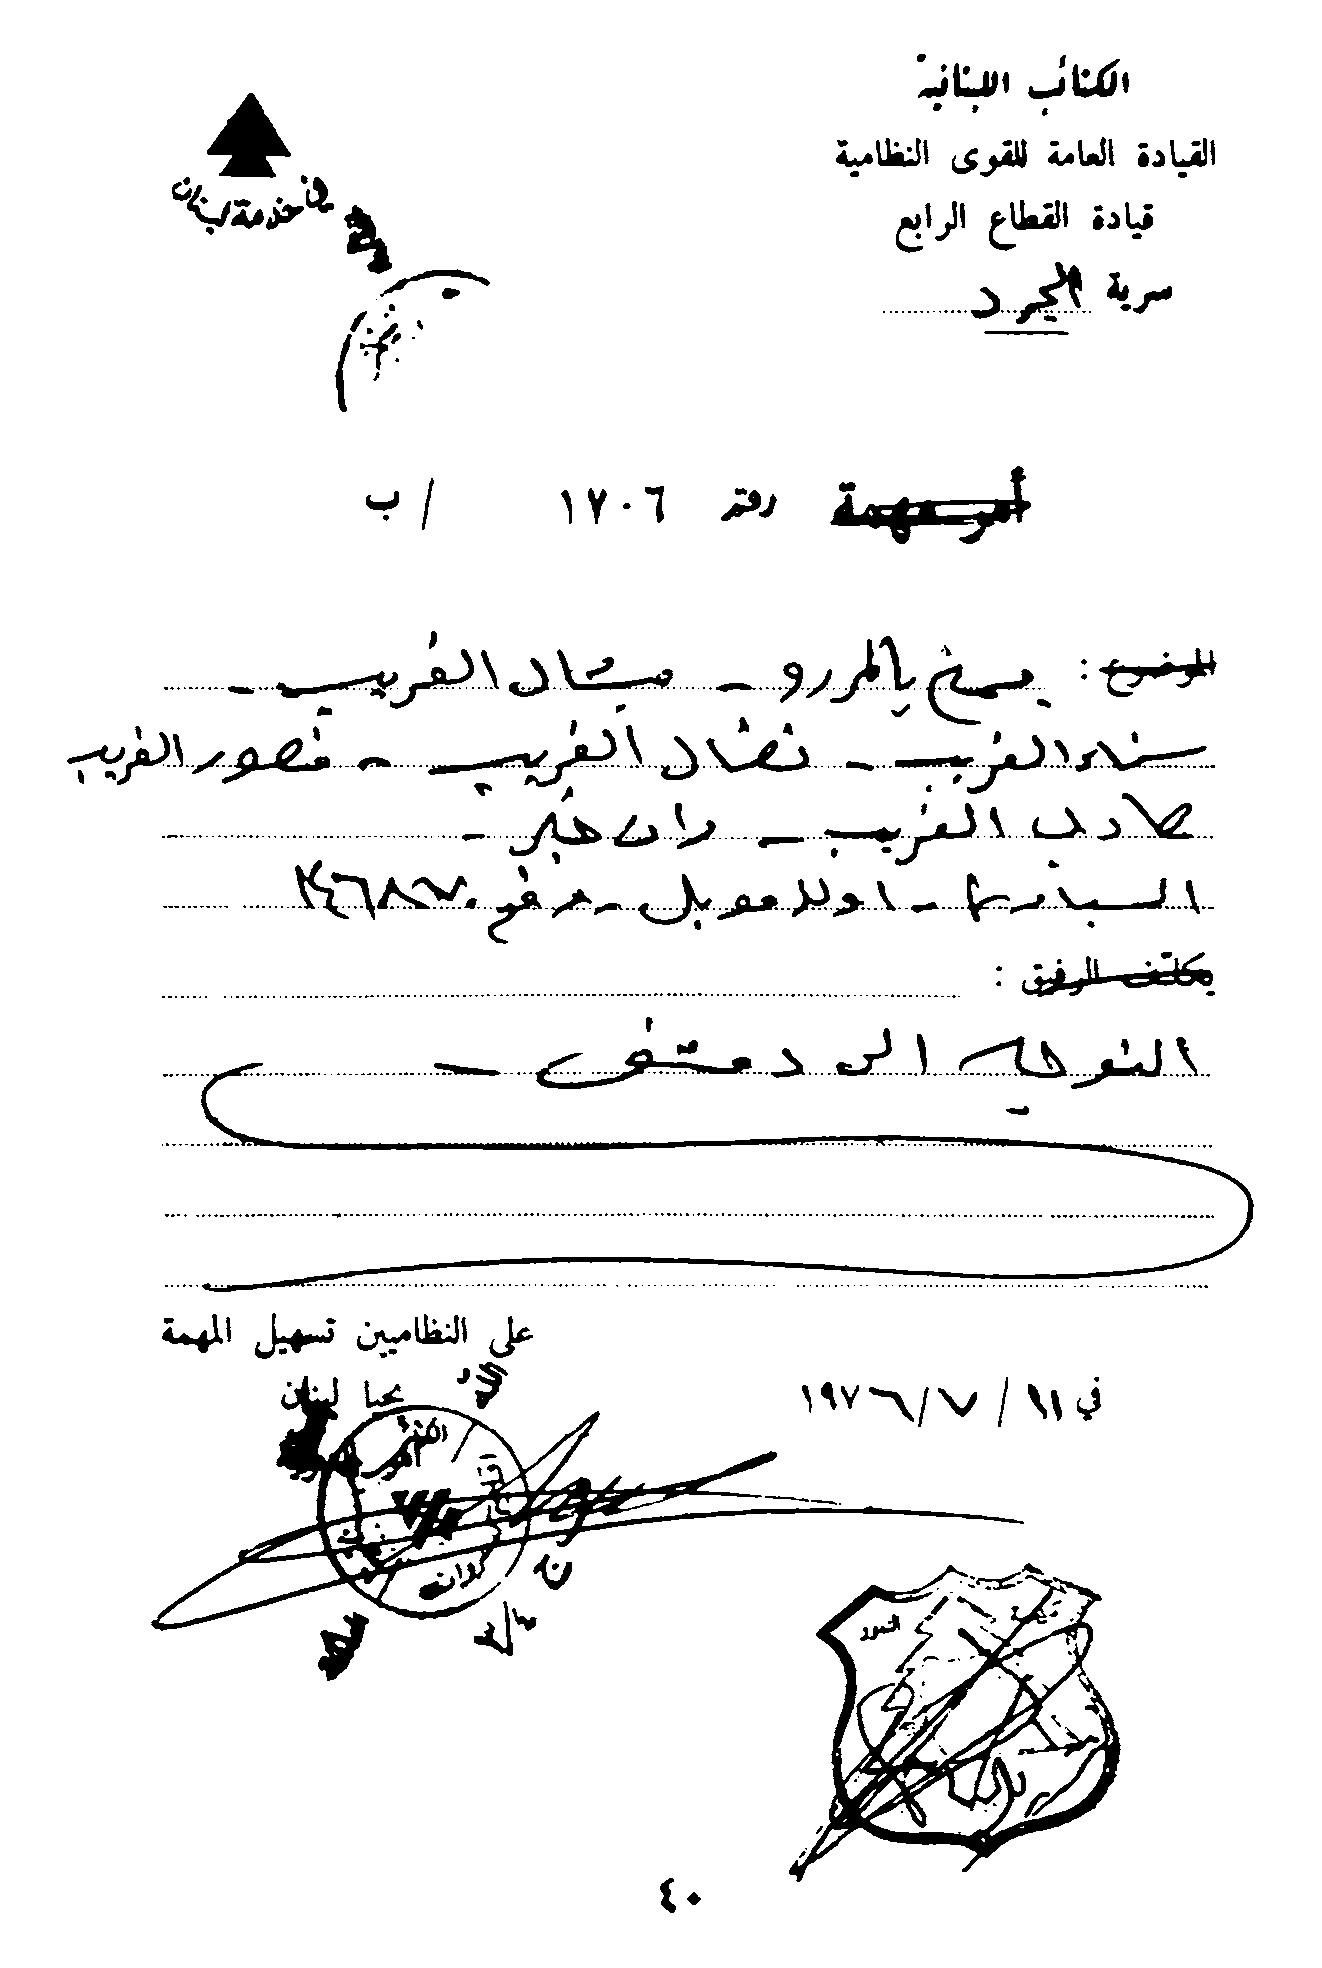 الكتائب اللبنانية
القيادة العامة للقوى النظامية
قيادة القطاع الرابع
سرية الجرد
في خدمة لبنان
أمر مهمة رقم ١٧٠٦ / ب
الموضوع : يسمح بالمرور - ميشال الغريب -
سناء الغريب - نضال الغريب - منصور الغريب
عادل الغريب - وان خبر -
السيارة - اولدزموبيل - رقم
يكلف الرفيق :
التوجه الى دمشق -
على النظاميين تسهيل المهمة
يحيا لبنان
في ١١ / ٧ / ١٩٧٦
٤٠